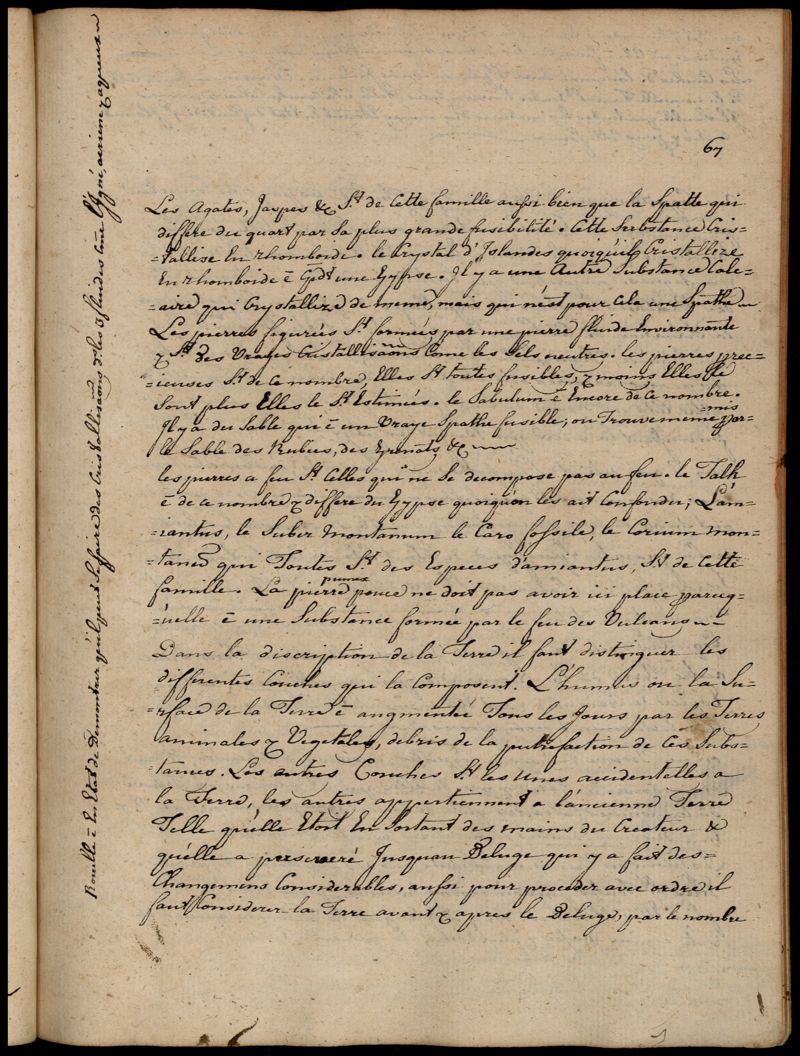 67
Les Agates, Jaspes &c St de Cette famille aussi bien que la Spatte qui
differe du quart par sa plus grande fusibilité. Cette Substance Cris-
-tallise En rhomboide. le Crystal d'Islandes quoiqu'il Cristallize
En rhomboide ē Gpdt une Gypse. Il y a une Autre Substance Calc-
-aire qui Crystallize de meme, mais qui n'est pour Cela une Spathe
Les pierres figurées St formées par une pierre fluide Environnante
& St des Vrayes Cristallisaōns Come les Sels neutres. les pierres prec-
-ieuses St de ce nombre, Elles St toutes fusibles, & moins Elles le
Sont plus Elles le St Estimées. le Sabulum ē Encore de ce nombre.
Il y a du Sable qui ē un Vraye Spathe fusible, on Trouve meme par-mis
le Sable des Rubies, des Grenats, &c
les pierres a feu St Celles qui ne Se decompose pas au feu. le Talk
ē de ce nombre & differe du Gypse quoiqu'on les ait Confondu; L'am-
-iantus, le Suber Montanum le Caro fossile, le Corium mon-
-tanū qui Toutes St des Especes d'amiantus, St de Cette
famille. La pierre pumex ponce ne doit pas avoir ici place parceq-
-u'elle ē une Substance formée par le feu des Vulcans
Dans la discription de la Terre il faut distinguer les
differentes Couches qui la Composent. L'humus ou la Su-
-rface de la Terre ē augmenteé Tous les Jours par les Terres
animales & Vegetales, debris de la putrefaction de Ces Subs-
-tances. Les autres Couches St les unes accidentelles a
la Terre, les autres appertiennent a l'ancienne Terre
Telle qu'elle Etoit En Sortant des mains du Createur &
qu'elle a perseveré Jusquau Deluge qui y a fait des-
Changemens Considerables, aussi pour proceder avec ordre il
faut Considerer la Terre avant & apres le Deluge, par le nombre
Rouelle ē En Etat de Demontrer qu'il peut Se faire des Cristallisaōns ds les 3 fluides cōe L'Igné, aerien & aqueux